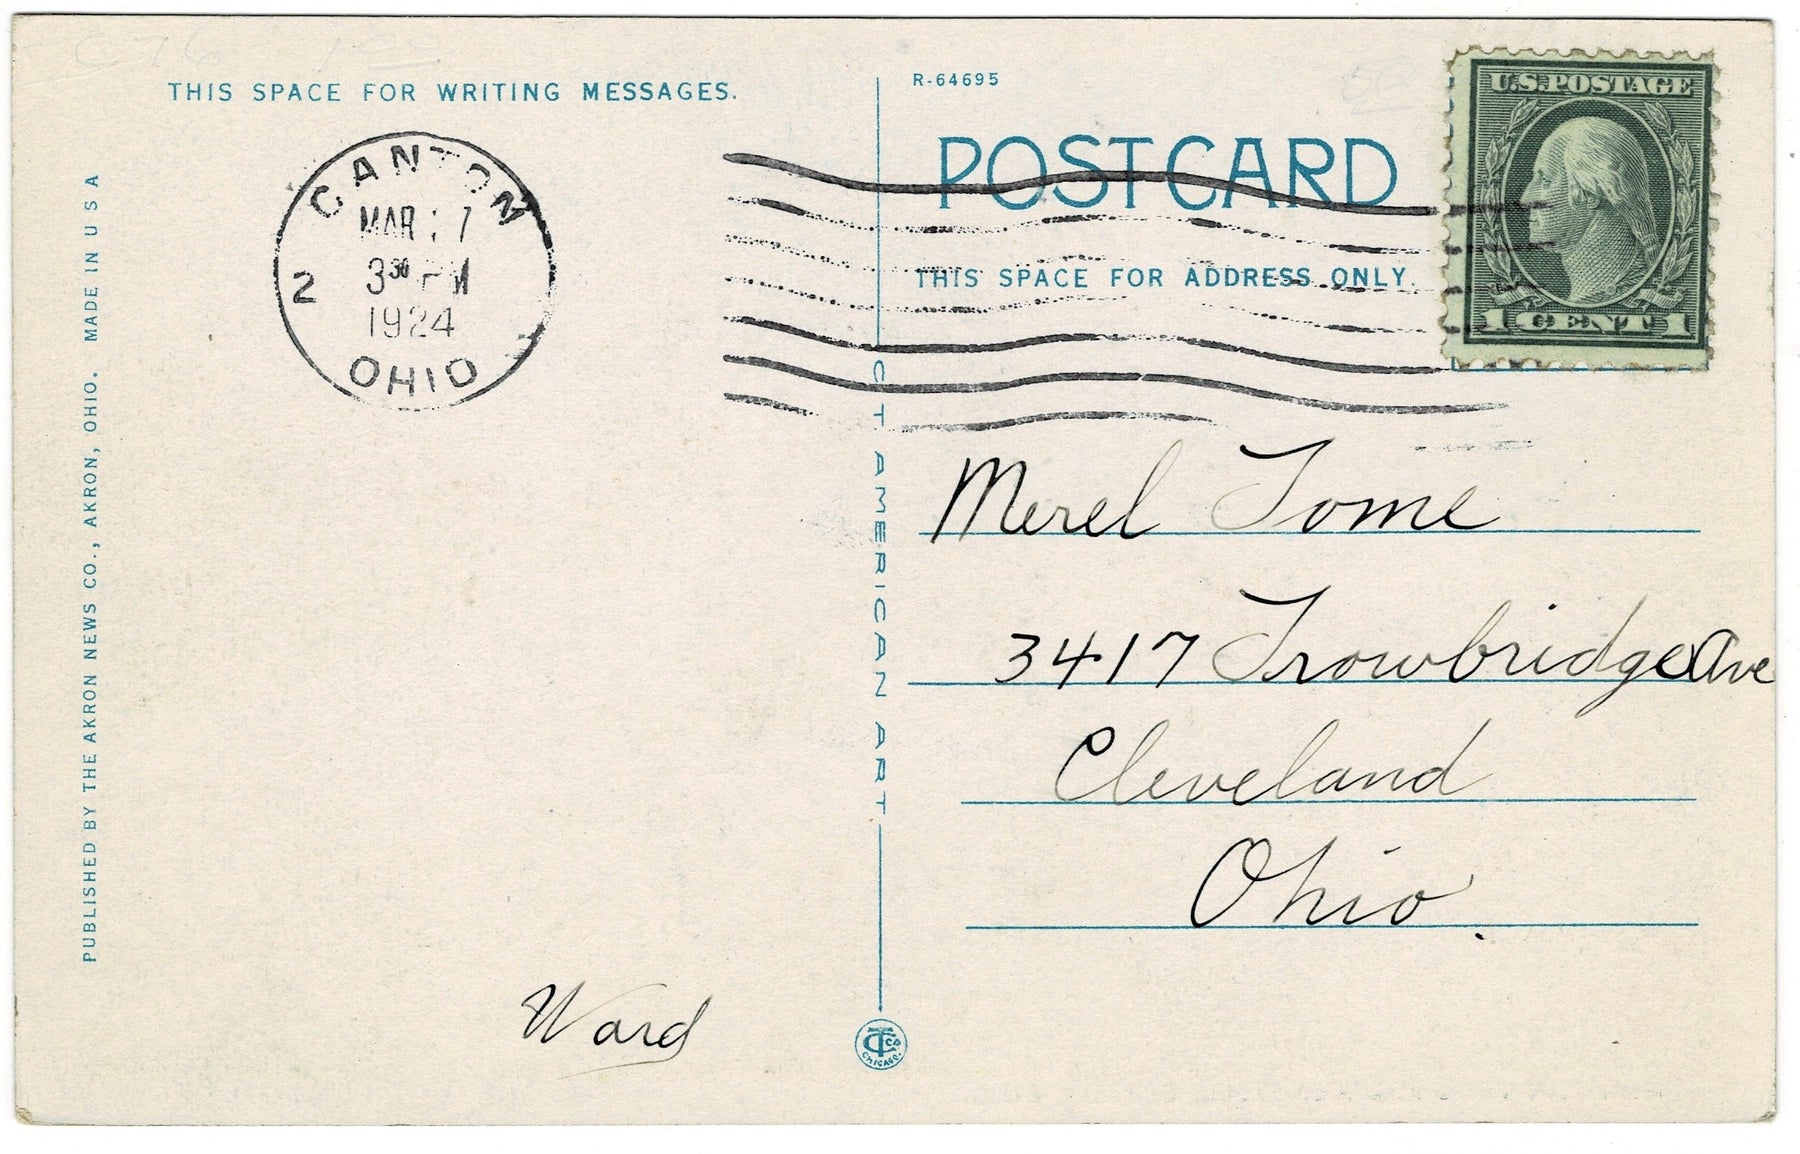 THIS SPACE FOR WRITING MESSAGES.
CANTON
MAR 7
3 30 PM
1924
2
OHIO
PUBLISHED BY THE AKRON NEWS CO., AKRON, OHIO. MADE IN U S A
Ward
C T AMERICAN ART
CT Co
CHICAGO.
R-64695
POST CARD
THIS SPACE FOR ADDRESS ONLY.
U.S. POSTAGE
1 CENT 1
Merel Tome
3417 Trowbridge Ave
Cleveland
Ohio.